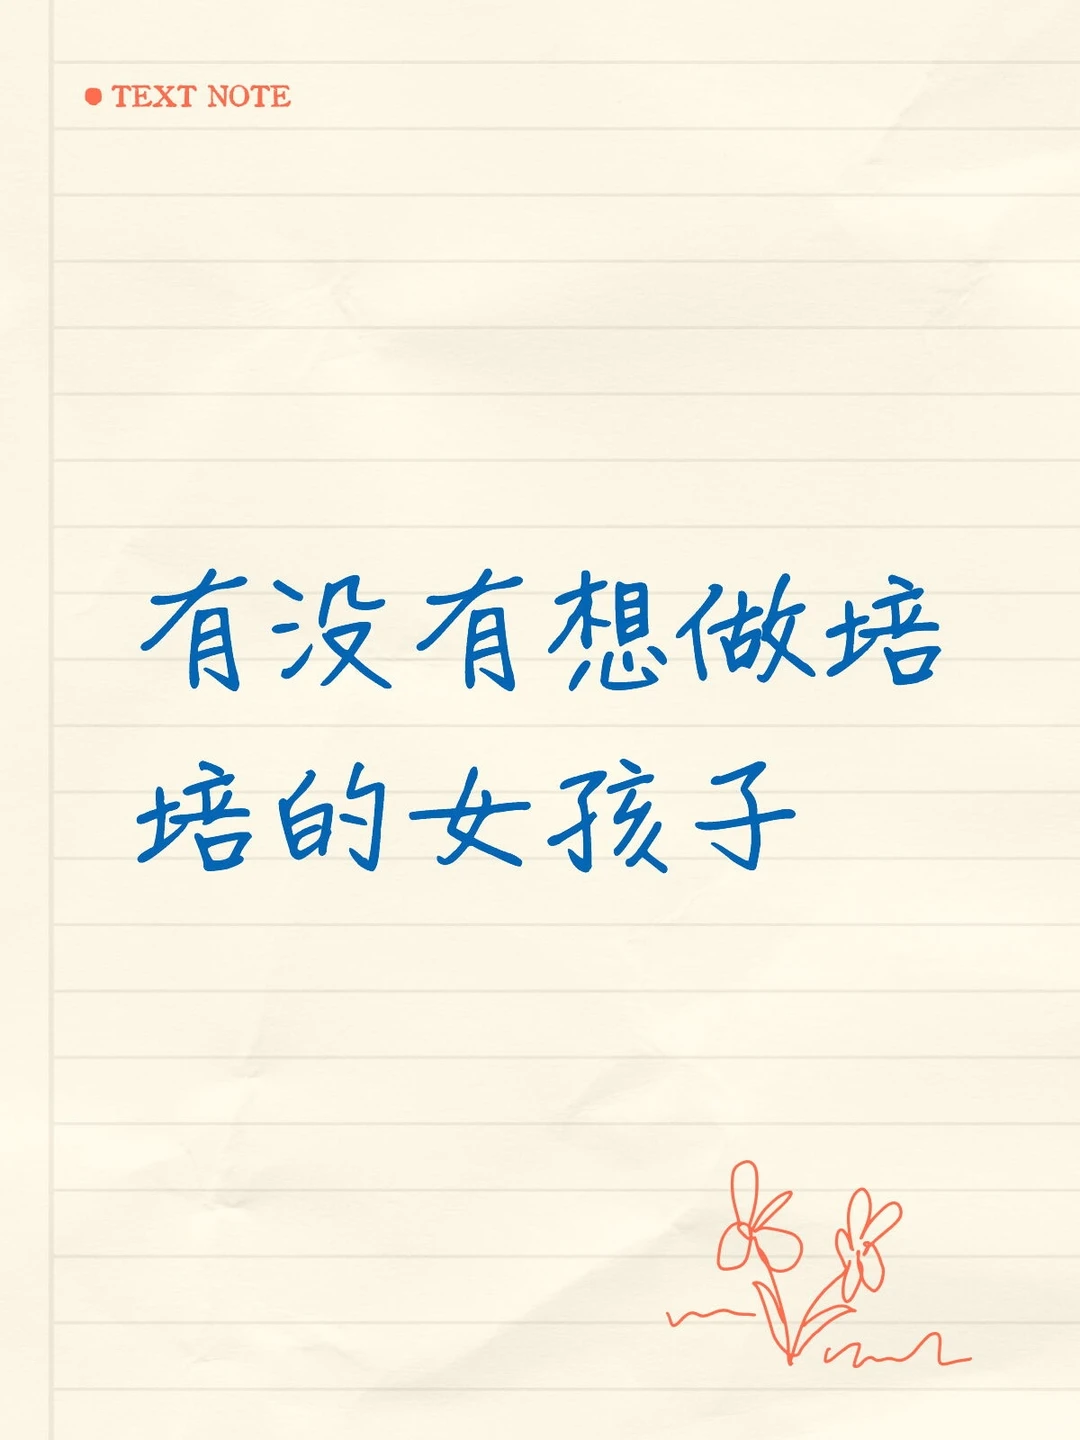 TEXT NOTE
有没有想做培
培的女孩子